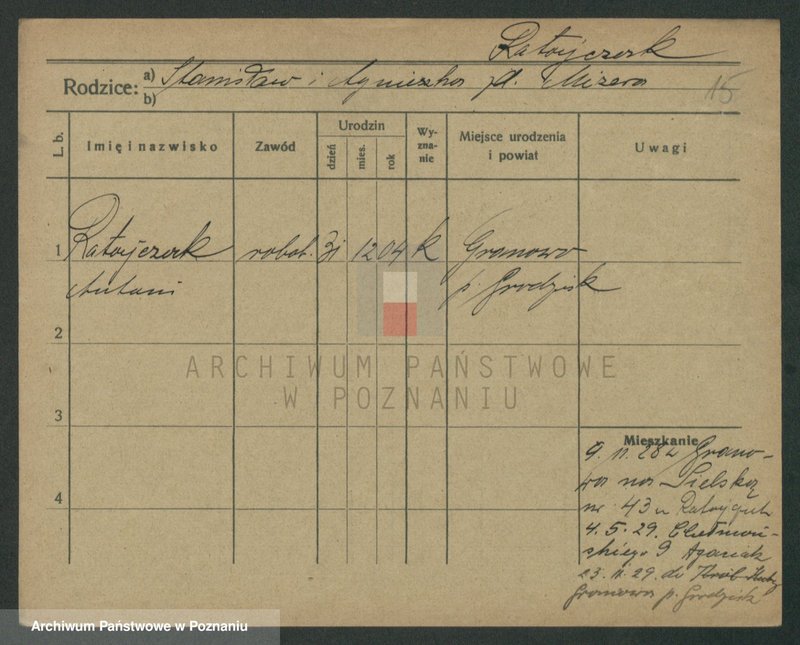 Ratajczak
Rodzice: a) Stanisław i Agnieszka zd. Mizera
b)
15
L. b. Imię i nazwisko Zawód Urodzin dzień mies. rok Wy-zna-nie Miejsce urodzenia i powiat Uwagi
1 Ratajczak robot. 31 12 04 k Granowo
Antoni p. Grodzisk
2
ARCHIWUM PAŃSTWOWE
W POZNANIU
3
Mieszkanie
9. 11. 28 z Grano-
wa na Sielską
nr 43 u
4. 5. 29. Chełmoń-
skiego 9
23. 11. 29. do
4
Granowa p. Grodzisk
Archiwum Państwowe w Poznaniu